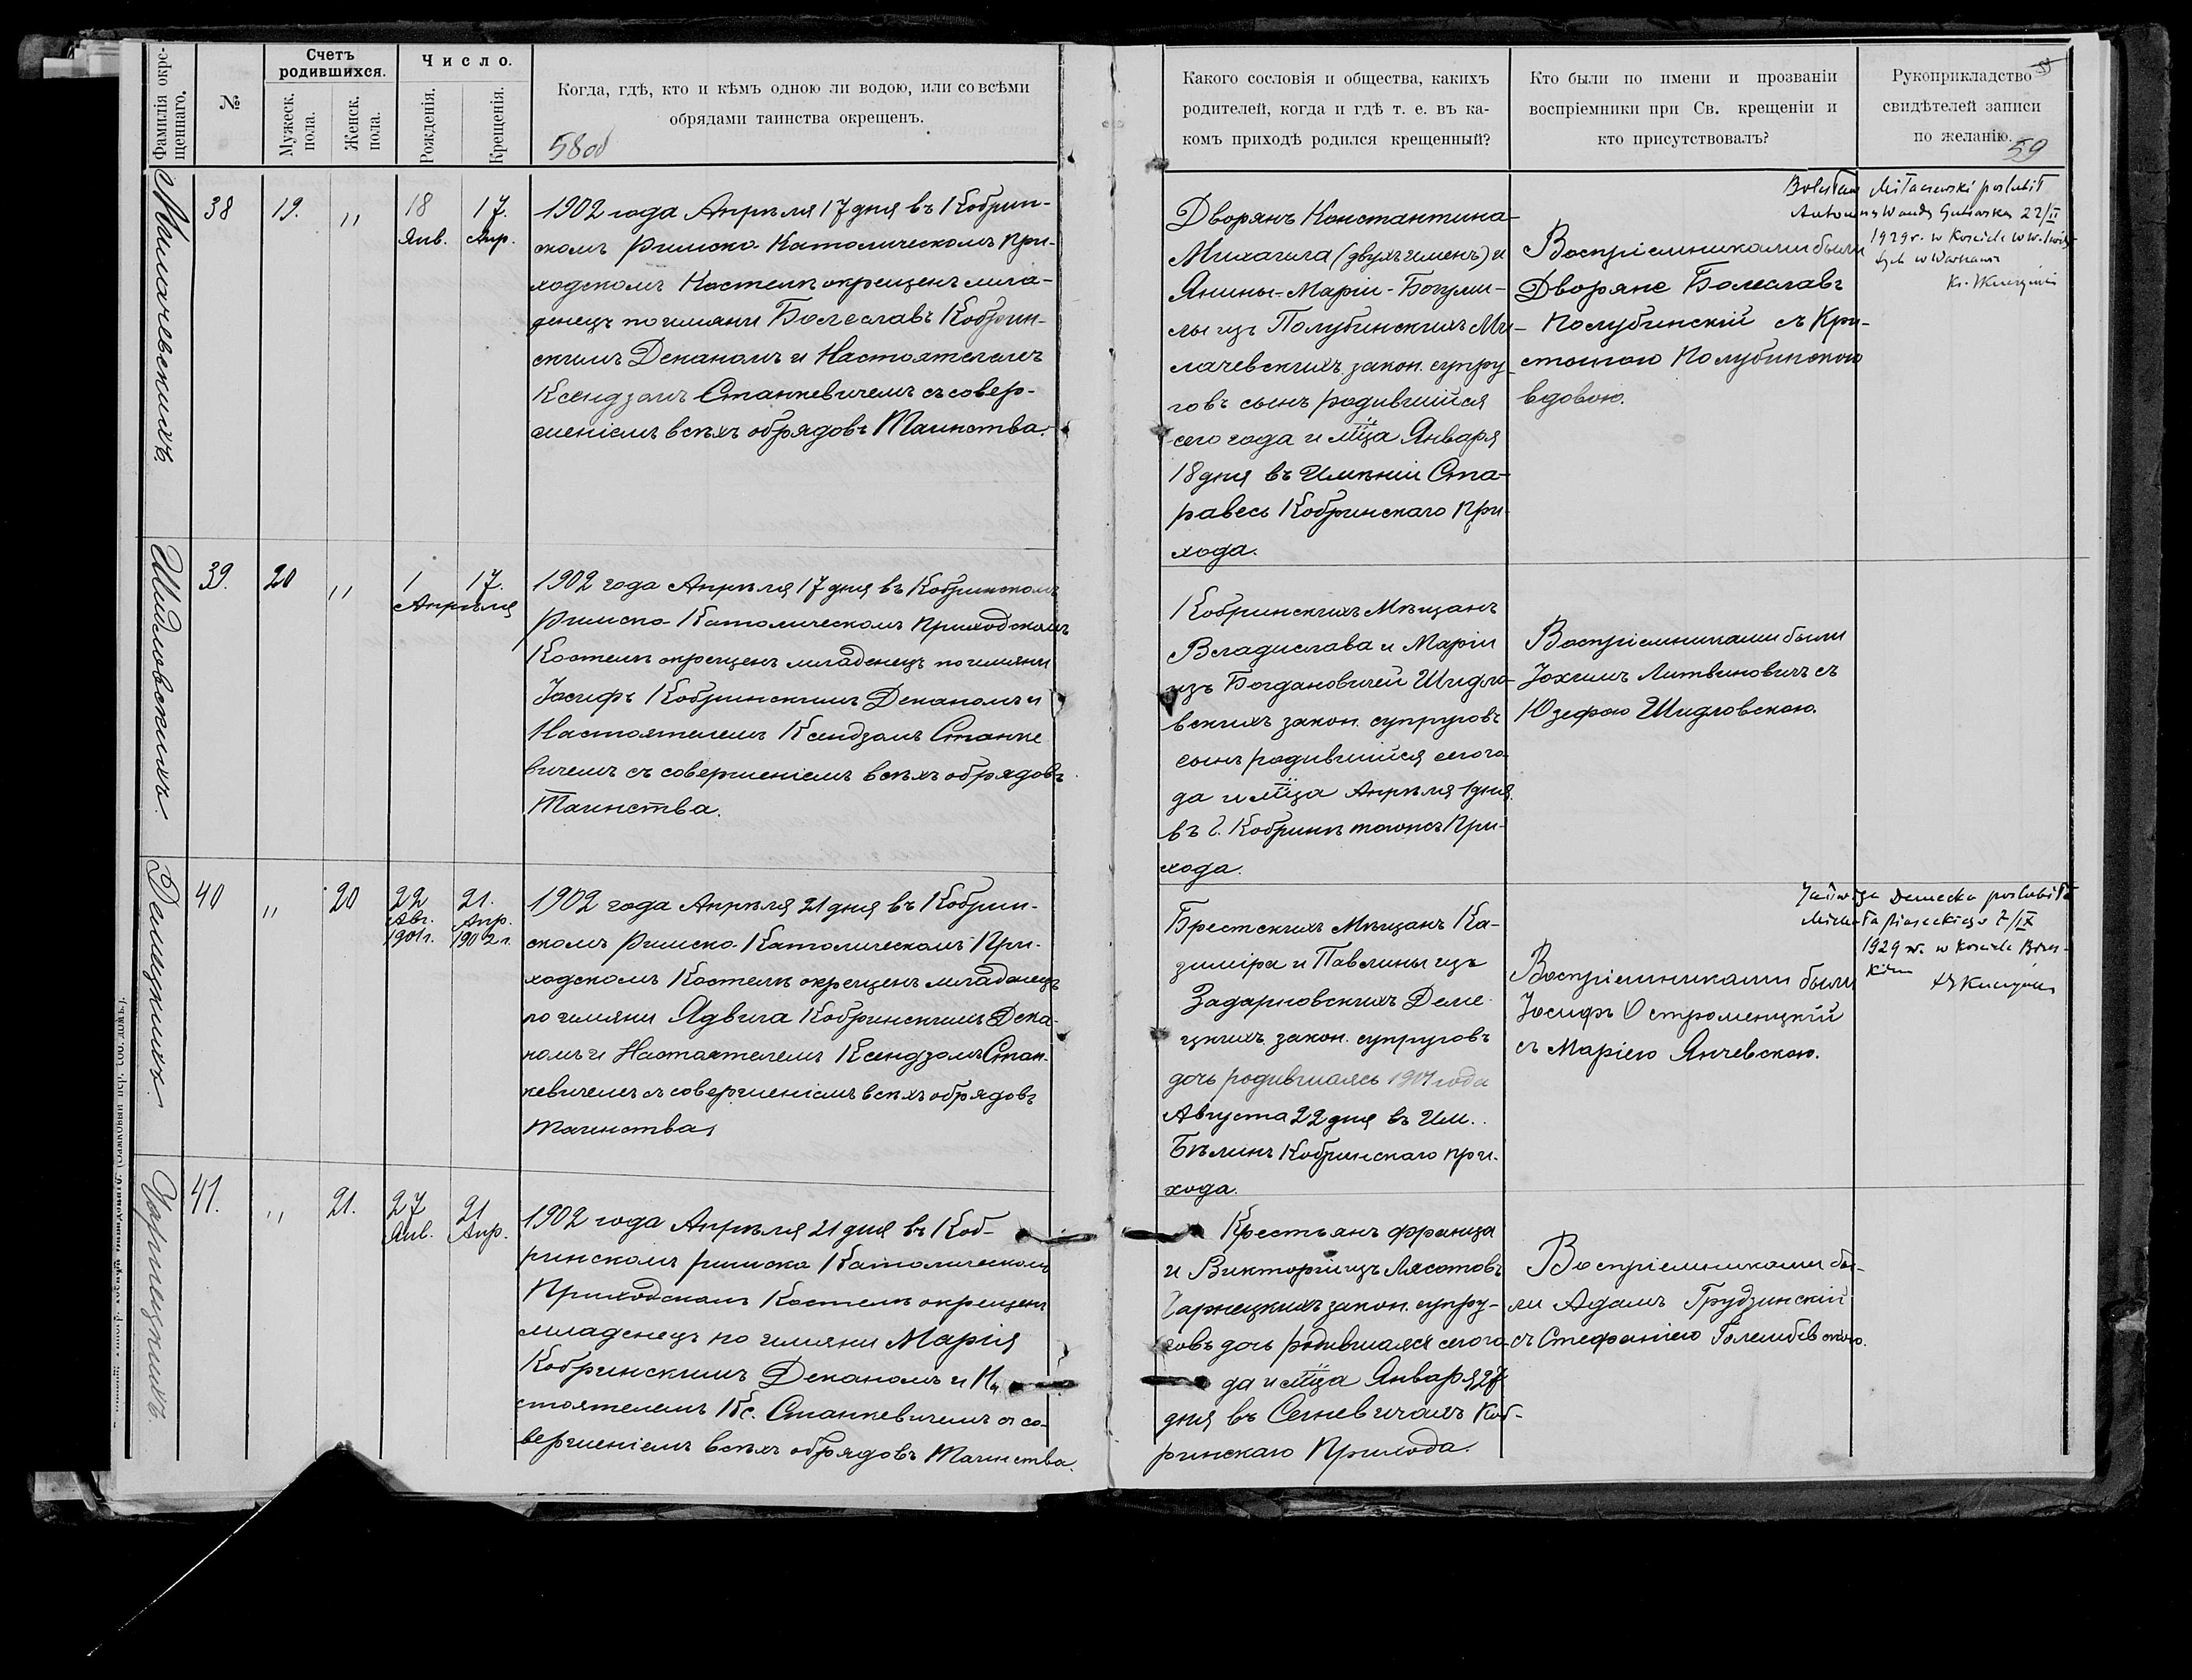 Фамилія окрещеннаго.
№
Счетъ
родившихся.
Мужеск.
пола.
Женск.
пола.
Число.
Рожденія.
Крещенія.
Когда, гдѣ, кто и кѣмъ одною ли водою, или со всѣми
обрядами таинства окрещенъ.
58об
Какого сословія и общества, какихъ
родителей, когда и гдѣ т. е. въ ка-
комъ приходѣ родился крещенный?
Кто были по имени и прозваніи
воспріемники при Св. крещеніи и
кто присутствовалъ?
Рукоприкладство
свидѣтелей записи
по желанію.
59
Милачевскихъ.
38
19.
"
18
Янв.
17.
Апр.
1902 года Апрѣля 17 дня въ Кобрин-
скомъ Римско-Католическомъ При-
ходскомъ Костелѣ окрещенъ мла-
денецъ по имяни Болеславъ Кобрин-
скимъ Деканомъ и Настоятелемъ
Ксендзомъ Станкевичемъ съ совер-
шеніемъ всѣхъ обрядовъ Таинства.
Дворянъ Константина-
Михаила (двухъ именъ) и
Янины-Маріи-Богуми-
лы изъ Полубинскихъ Ми-
лачевскихъ закон. супру-
говъ сынъ родившійся
сего года и мца Января
18 дня въ Имѣніи Ста-
равесь Кобринскаго При-
хода.
Воспріемниками были
Дворяне Болеславъ
Полубинскій съ Кри-
стиною Полубинскою
вдовою.
Bolesław Miłaczewski poślubił
22/II
1929 r. w Kościele
w Warszawie
Шидловскихъ.
39.
20
"
1
17.
Апрѣля
1902 года Апрѣля 17 дня въ Кобринскомъ
Римско-Католическомъ Приходскомъ
Костелѣ окрещенъ младенецъ по имяни
Іосифъ Кобринскимъ Деканомъ и
Настоятелемъ Ксендзомъ Станке
вичемъ съ совершеніемъ всѣхъ обрядовъ
Таинства.
Кобринскихъ Мѣщанъ
Владислава и Маріи
изъ Богдановичей Шидло-
вскихъ закон. супруговъ
сынъ родившійся сего го-
да и мца Апрѣля 1 дня
въ г. Кобринѣ тогожъ При-
хода.
Воспріемниками были
Іохимъ Литвиновичъ съ
Юзефою Шидловскою.
Демецкихъ.
40
"
20
22
Авг.
1901 г.
21.
Апр.
1902 г.
1902 года Апрѣля 21 дня въ Кобрин-
скомъ Римско-Католическомъ При-
ходскомъ Костелѣ окрещенъ младенецъ
по имяни Ядвига Кобринскимъ Дека-
номъ и Настоятелемъ Ксендзомъ Стан-
кевичемъ съ совершеніемъ всѣхъ обрядовъ
Таинства
Брестскихъ Мѣщанъ Ка-
зиміра и Павлины изъ
Задарновскихъ Деме-
цкихъ закон. супруговъ
дочь родившаясь 1901 года
Августа 22 дня въ Им.
Бѣлинъ Кобринскаго при-
хода.
Воспріемниками были
Іосифъ Остромецкій
съ Маріею Янчевскою.
Jadwiga Demecka poślubiła
Michała Piaseckiego 7/IX
1929 r. w Kościele
Чарнецкихъ.
41.
"
21.
27
Янв.
21
Апр.
1902 года Апрѣля 21 дня въ Коб-
ринскомъ римско Католическомъ
Приходскомъ Костелѣ окрещенъ
младенецъ по имяни Марія
Кобринскимъ Деканомъ и На
стоятелемъ Кс. Станкевичемъ съ со-
вершеніемъ всѣхъ обрядовъ Таинства.
Крестьянъ Франца
и Викторіи изъ Лясотовъ
Чарнецкихъ закон. супру-
говъ дочь родившаяся сего го-
да и мца Января 27
дня въ Сегневичахъ Коб-
ринскаго Прихода.
Воспріемниками бы-
ли Адамъ Грудзинскій
съ Стефаніею Голембевскою.